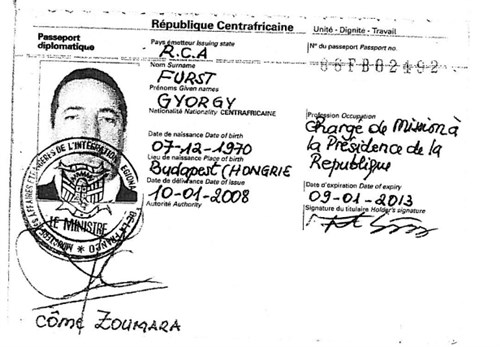 République Centrafricaine
Unité - Dignite - Travail
Passeport
diplomatique
Pays émetteur Issuing state
R.C.A
N° du passeport Passport no.
Nom Surname
FURST
Prénoms Given names
GYORGY
Nationalité Nationality CENTRAFRICAINE
Profession Occupation
Chargé de Mission à
la Présidence de la
République
Date de naissance Date of birth
07-12-1970
Lieu de naissance Place of birth
Budapest (HONGRIE
Date de délivrance Date of issue
10-01-2008
Autorité Authority
Date d'expiration Date of expiry
09-01-2013
Signature du titulaire Holder's signature
LE MINISTRE
CÔME ZOUMARA